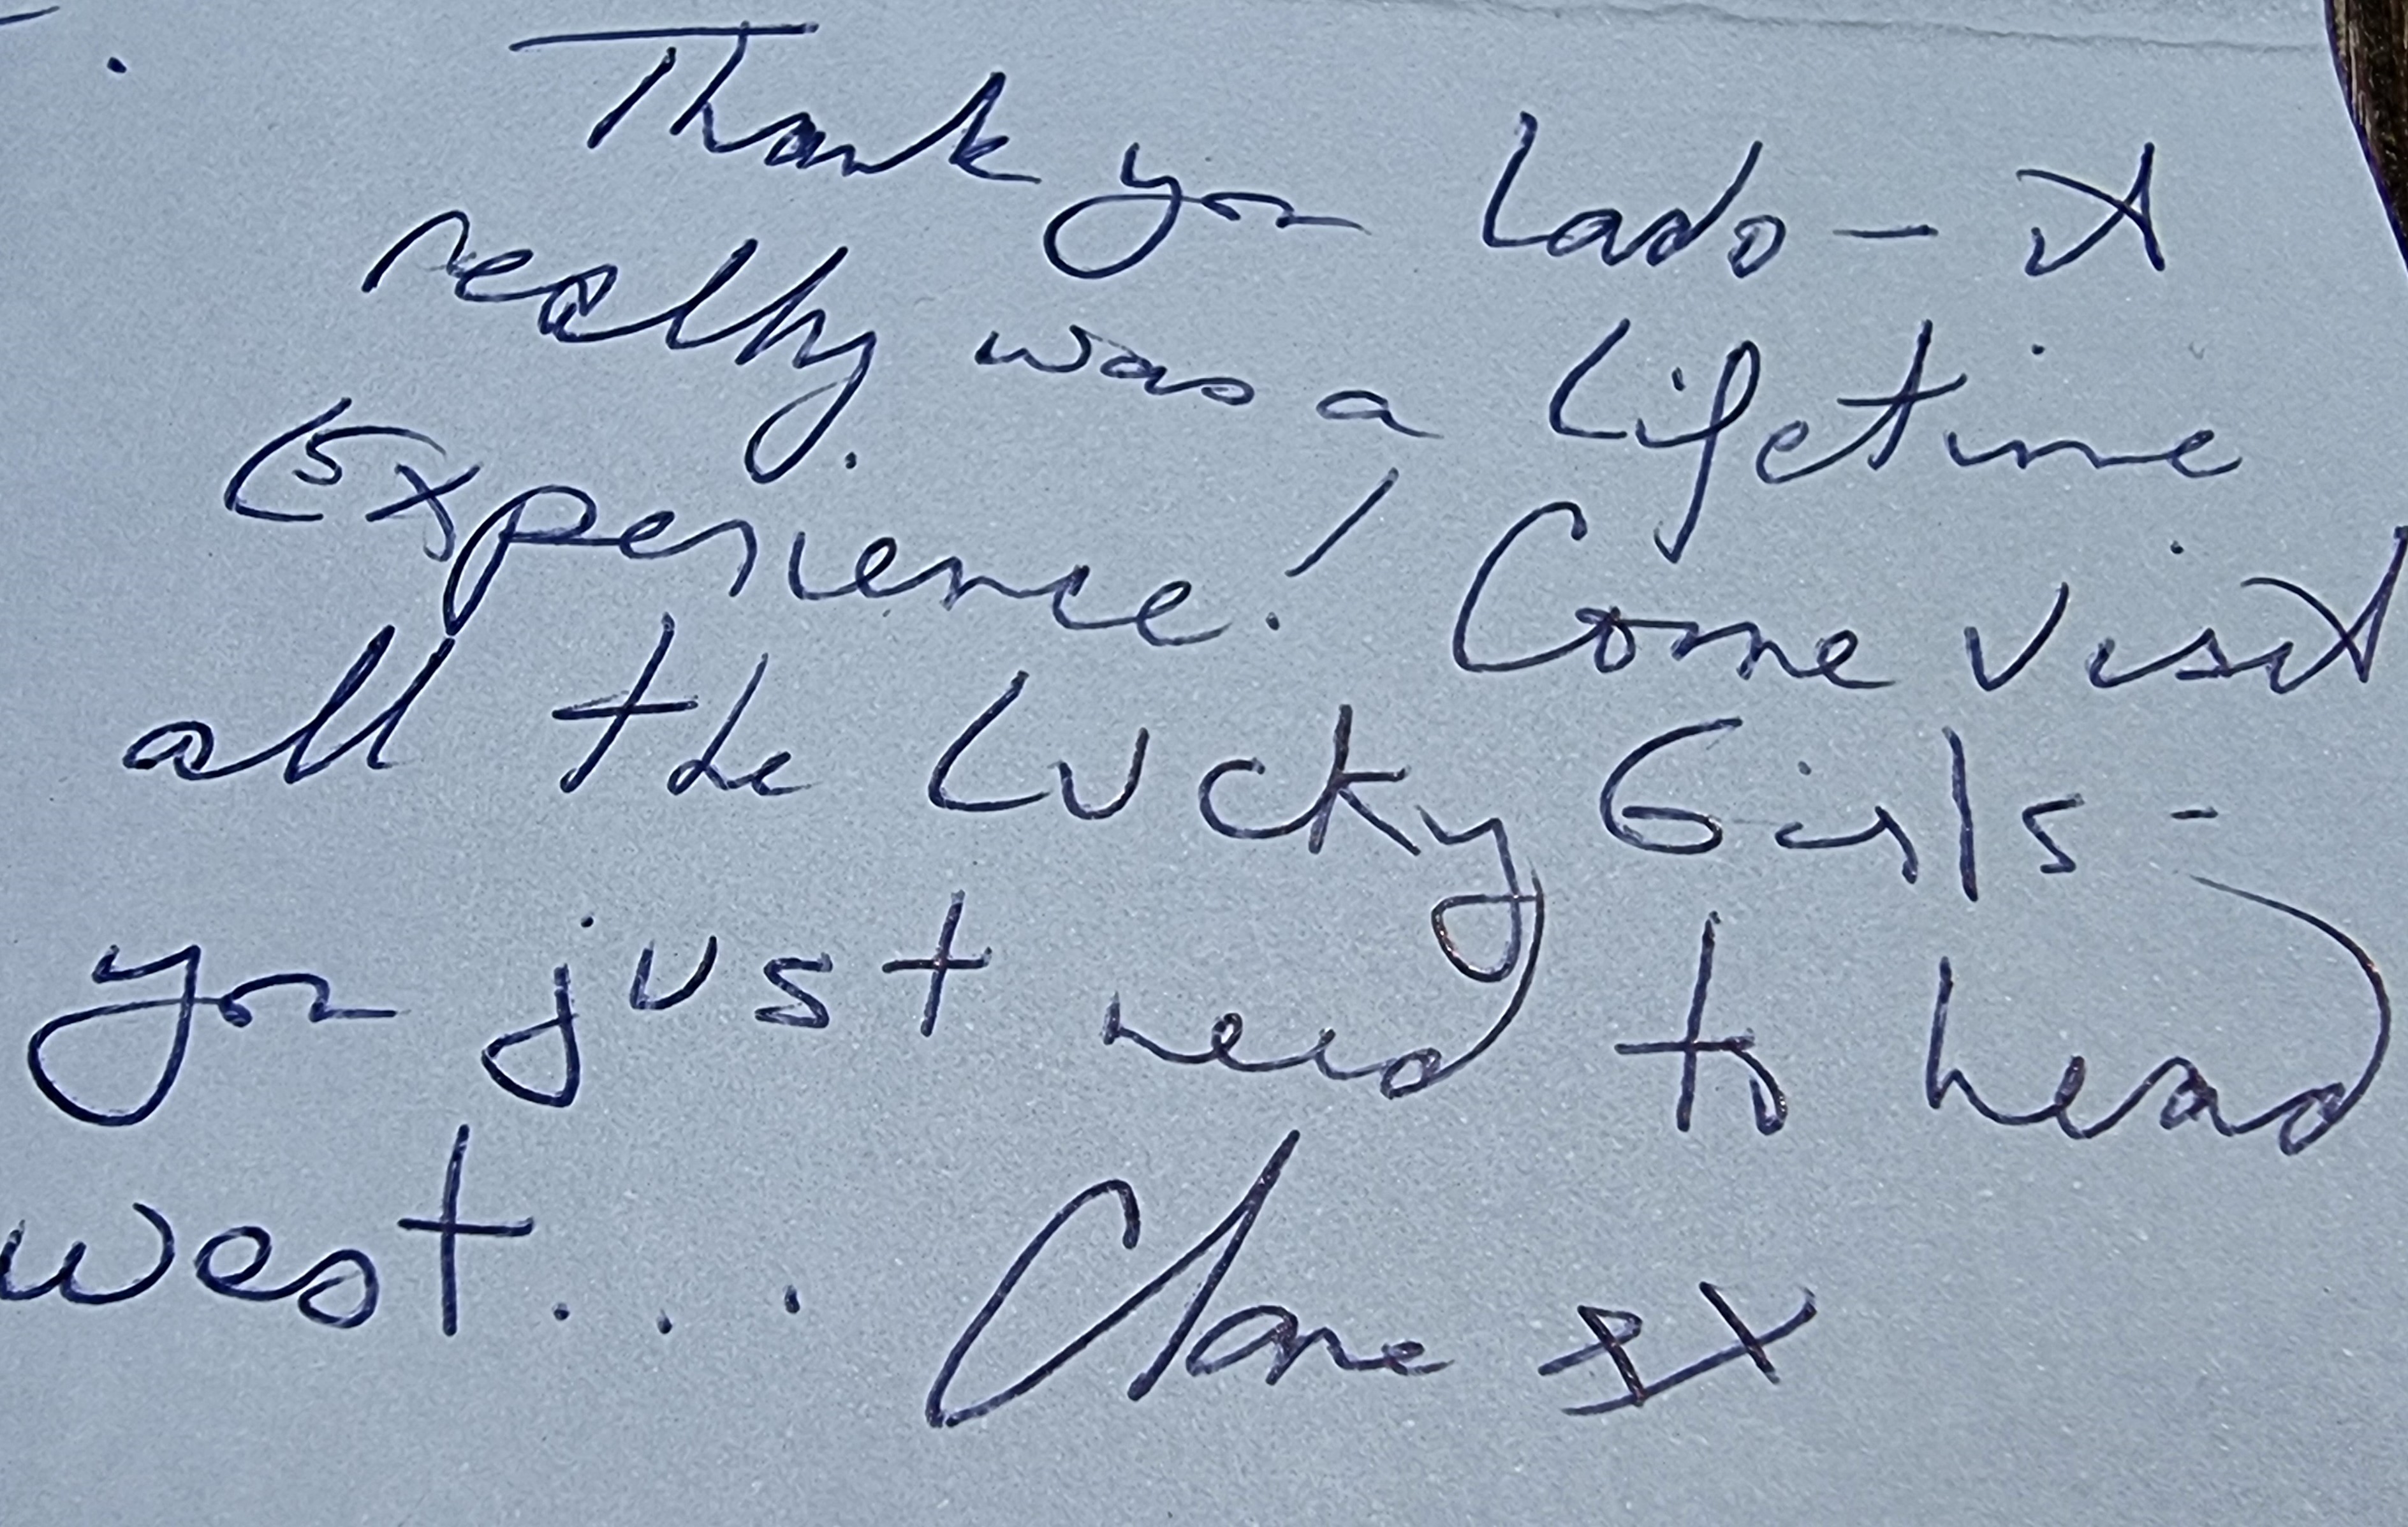 Thank you Lado - it
really was a Lifetime
Experience! Come visit
all the Lucky Girls -
you just need to head
west...  Clare xx